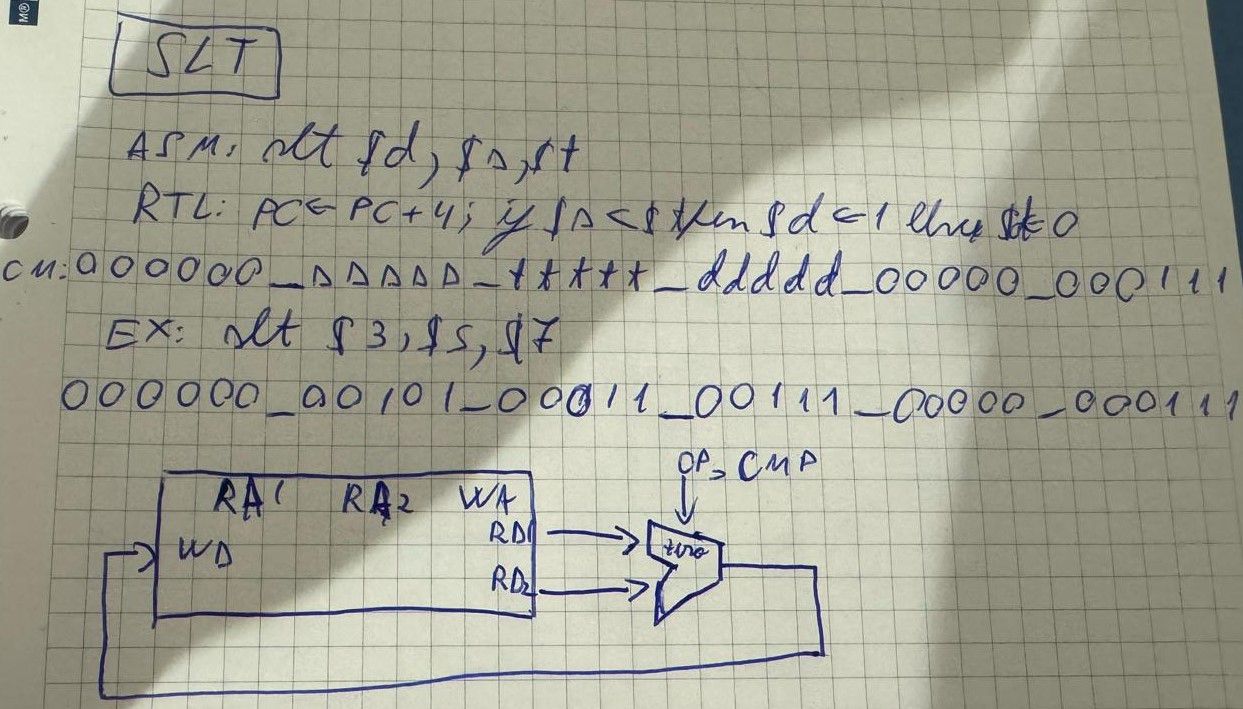 SLT
ASM: slt $d, $s, $t
RTL: PC ← PC + 4; if $s < $t then $d = 1 else $d = 0
CM: 000000_sssss_ttttt_ddddd_00000_000111
EX: slt $3, $5, $7
000000_00101_00011_00111_00000_000111
OP = CMP
RA1 RA2 WA
RD1
zero
WD
RD2